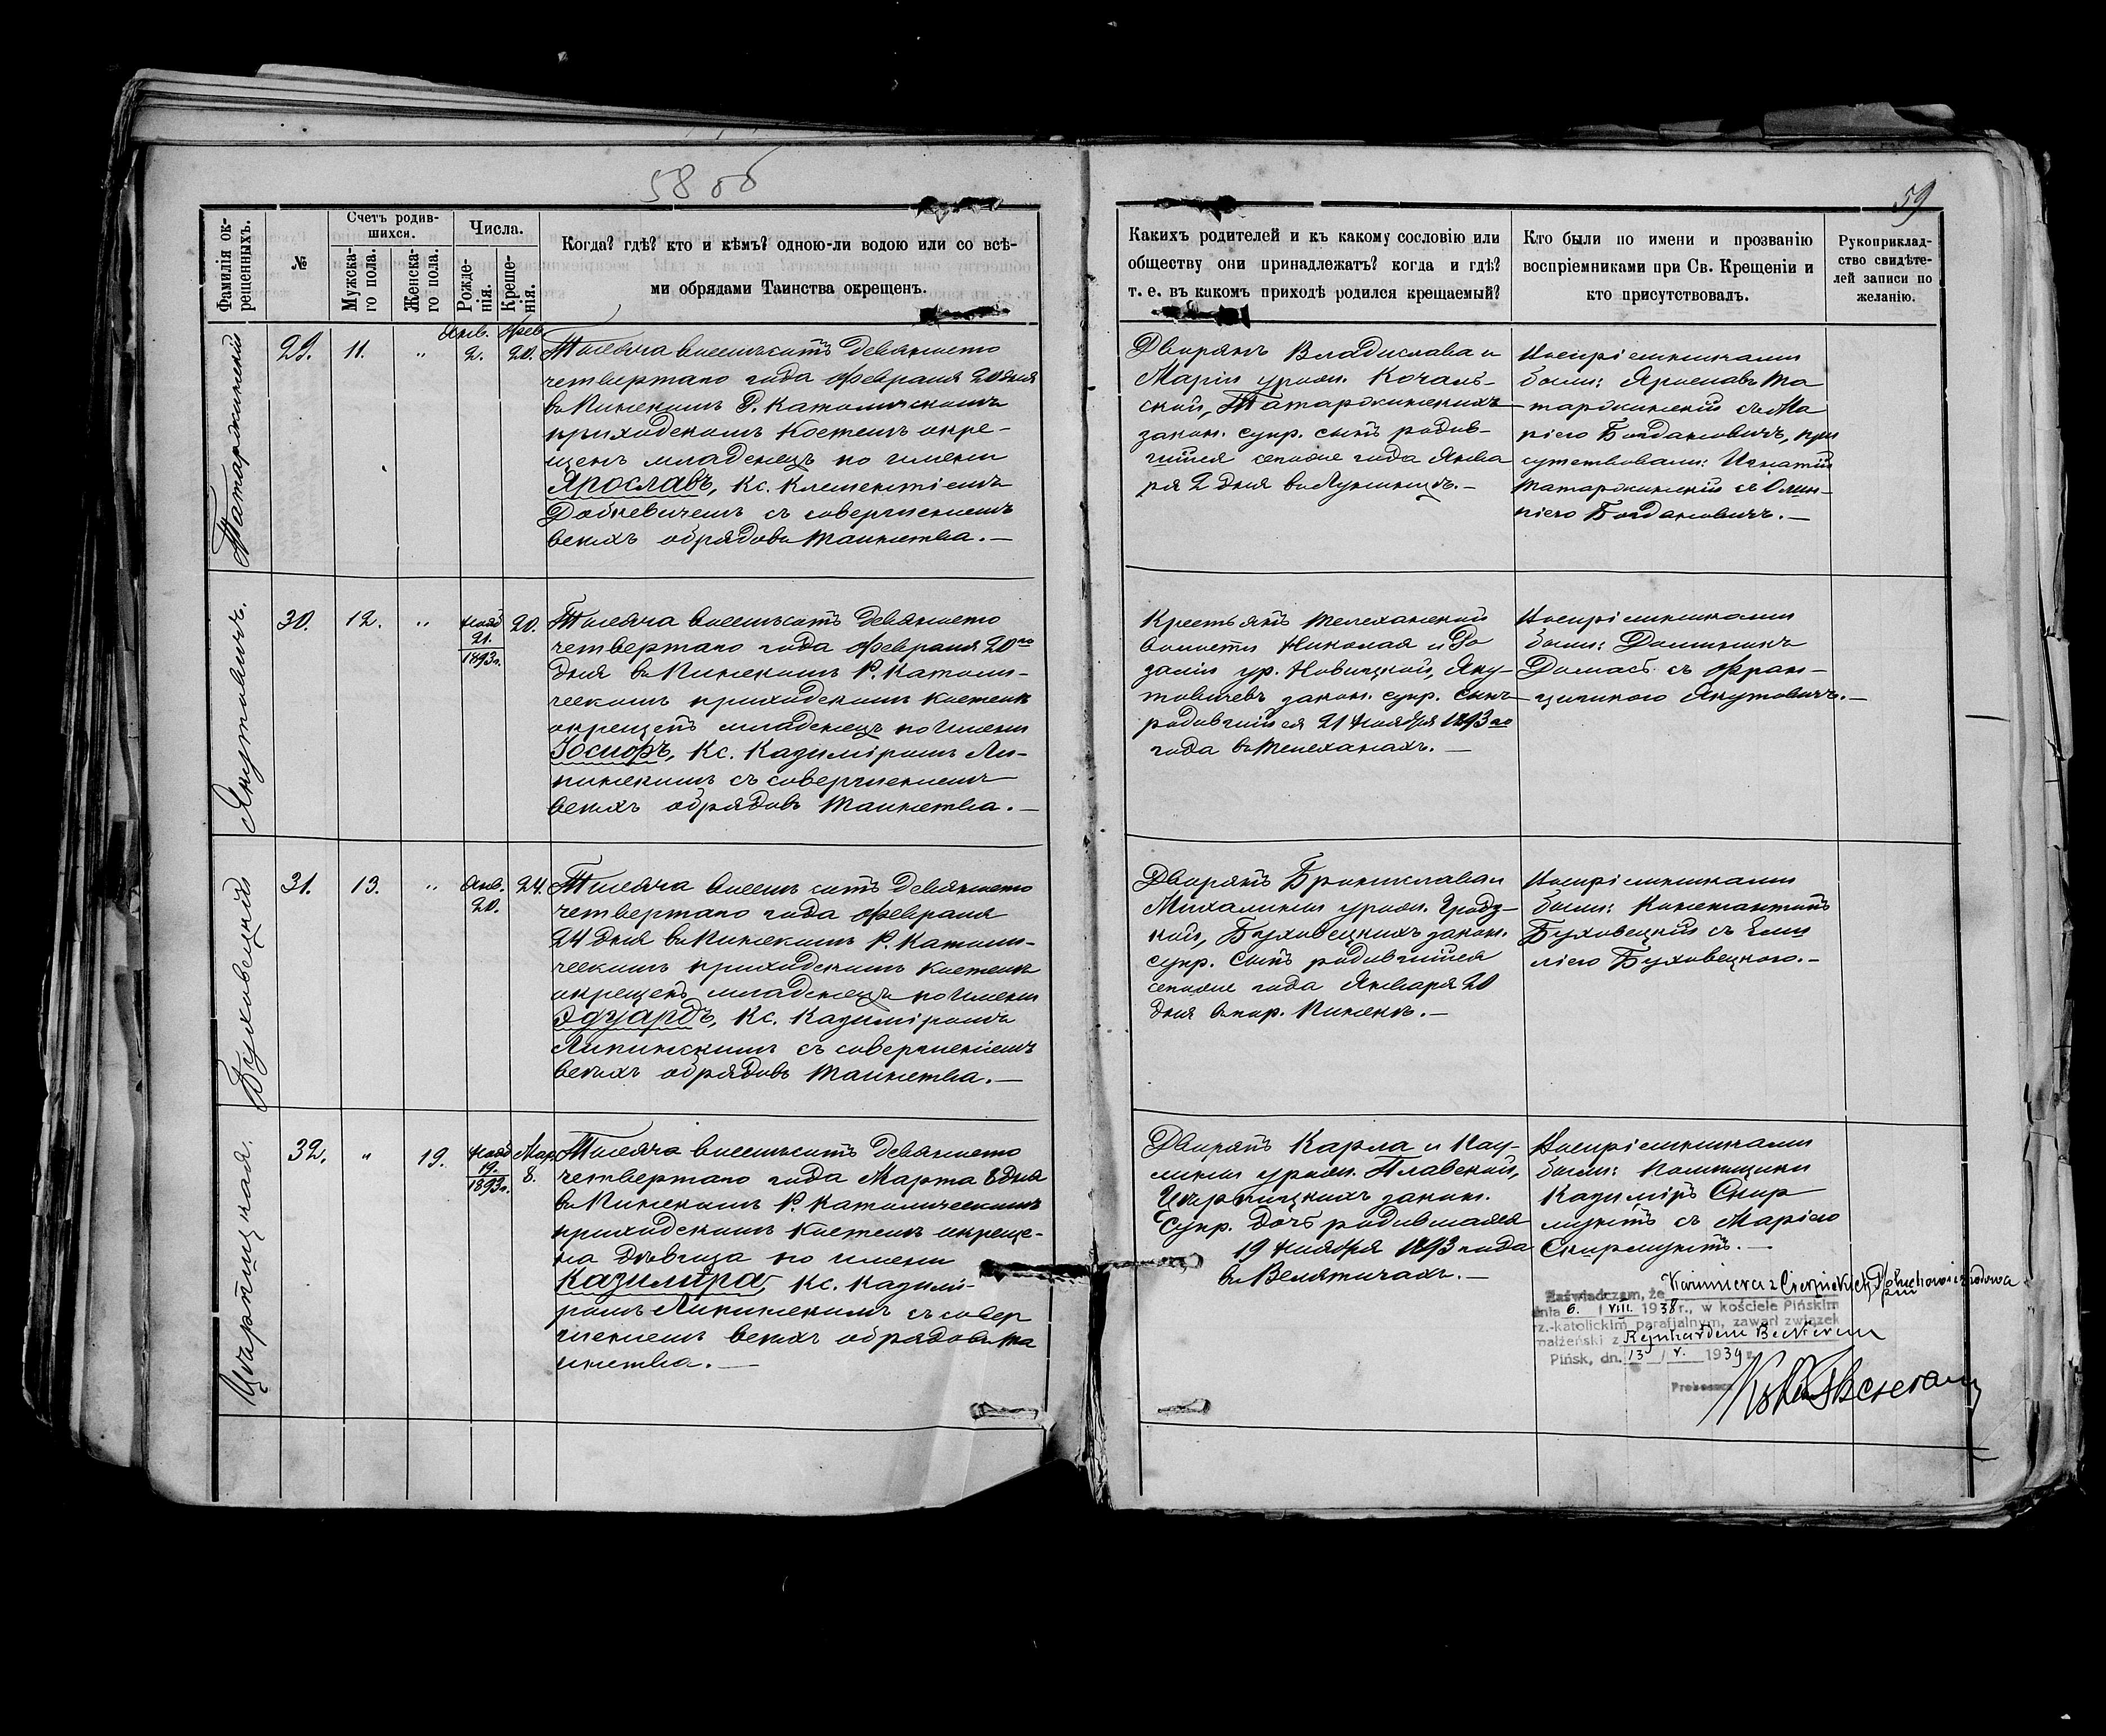 58 об
59
Фамилія ок-
рещенныхъ.
№
Счетъ родив-
шихся.
Мужска-
го пола.
Женска-
го пола.
Числа.
Рожде-
нія.
Креще-
нія.
Когда? гдѣ? кто и кѣмъ? одною-ли водою или со всѣ-
ми обрядами Таинства окрещенъ.
Какихъ родителей и къ какому сословію или
обществу они принадлежатъ? когда и гдѣ?
т. е. въ какомъ приходѣ родился крещаемый?
Кто были по имени и прозванію
воспріемниками при Св. Крещеніи и
кто присутствовалъ.
Рукоприклад-
ство свидѣте-
лей записи по
желанію.
Татаржинскій
29.
11.
"
Янв.
2.
Фев.
20.
Тысяча восемьсотъ девяносто
четвертаго года Февраля 20 дня
въ Пинскомъ Р. Католическомъ
приходскомъ костелѣ окре-
щенъ младенецъ по имени
Ярославъ, Кс. Клементіемъ
с совершеніемъ
всѣхъ обрядовъ таинства.—
Дворянъ Владислава и
Маріи урож. Кочаль-
ской, Татаржинскихъ
закон. супр. сынъ родив-
шійся сего же года Янва
ря 2 дня въ Лунинцѣ.—
Воспріемниками
были: Ярославъ Та
таржинскій съ Ма
ріею Богдановичъ, при
сутствовали: Игнатій
Татаржинскій съ Олим-
піею Богдановичъ.—
Якутовичъ.
30.
12.
"
Нояб
21.
1893г.
20.
Тысяча восемьсотъ девяносто
четвертаго года Февраля 20го
дня въ Пинскомъ Р. Католи-
ческомъ приходскомъ костелѣ
окрещенъ младенецъ по имени
Іосифъ, Кс. Казиміромъ Ли-
пинскимъ съ совершеніемъ
всѣхъ обрядовъ таинства.—
Крестьянъ Телеханской
волости Николая и Ро
заліи ур. Новицкой, Яку-
товичевъ закон. супр. сынъ
родившійся 21 Ноября 1893го
года въ Телеханахъ.—
Воспріемниками
были: Доминикъ
Домасъ съ Фран-
цишкою Якутовичъ.—
Буховецкій
31.
13.
"
Янв.
20.
24.
Тысяча восемьсотъ девяносто
четвертаго года Февраля
24 дня въ Пинскомъ Р. Католи-
ческомъ приходскомъ костелѣ
окрещенъ младенецъ по имени
Эдуардъ, Кс. Казиміромъ
Липинскимъ съ совершеніемъ
всѣхъ обрядовъ таинства.—
Дворянъ Бронислава и
Михалины урож. Гродз-
кой, Буховецкихъ закон.
супр. сынъ родившійся
сего же года Января 20
дня въ пар. Пинскѣ.—
Воспріемниками
были: Константинъ
Буховецкій съ Еми
ліею Буховецкою.—
Чарпицкая.
32.
"
19.
Нояб
19.
1893г.
Мар
8.
Тысяча восемьсотъ девяносто
четвертаго года Марта 8 дня
въ Пинскомъ Р. Католическомъ
приходскомъ костелѣ окреще-
на дѣвица по имени
Казиміра, Кс. Казимі-
ромъ Липинскимъ съ совер
шеніемъ всѣхъ обрядовъ та
инства.—
Дворянъ Карла и Пау-
лины урож. Плавской,
закон.
супр. дочь родившаяся
19 Ноября 1893 года
въ Велятичахъ.—
Воспріемниками
были: Помѣщики
Казиміръ Скир
мунтъ съ Маріею
Скирмунтъ.—
Zaświadczam, że Kazimiera z
dnia 6. / VIII. 1938 r., w kościele Pińskim
rz.-katolickim parafjalnym, zawarł związek
małżeński z Reinhardem Beckerem
Pińsk, dn. 13 / V. 1939 r.
Proboszcz